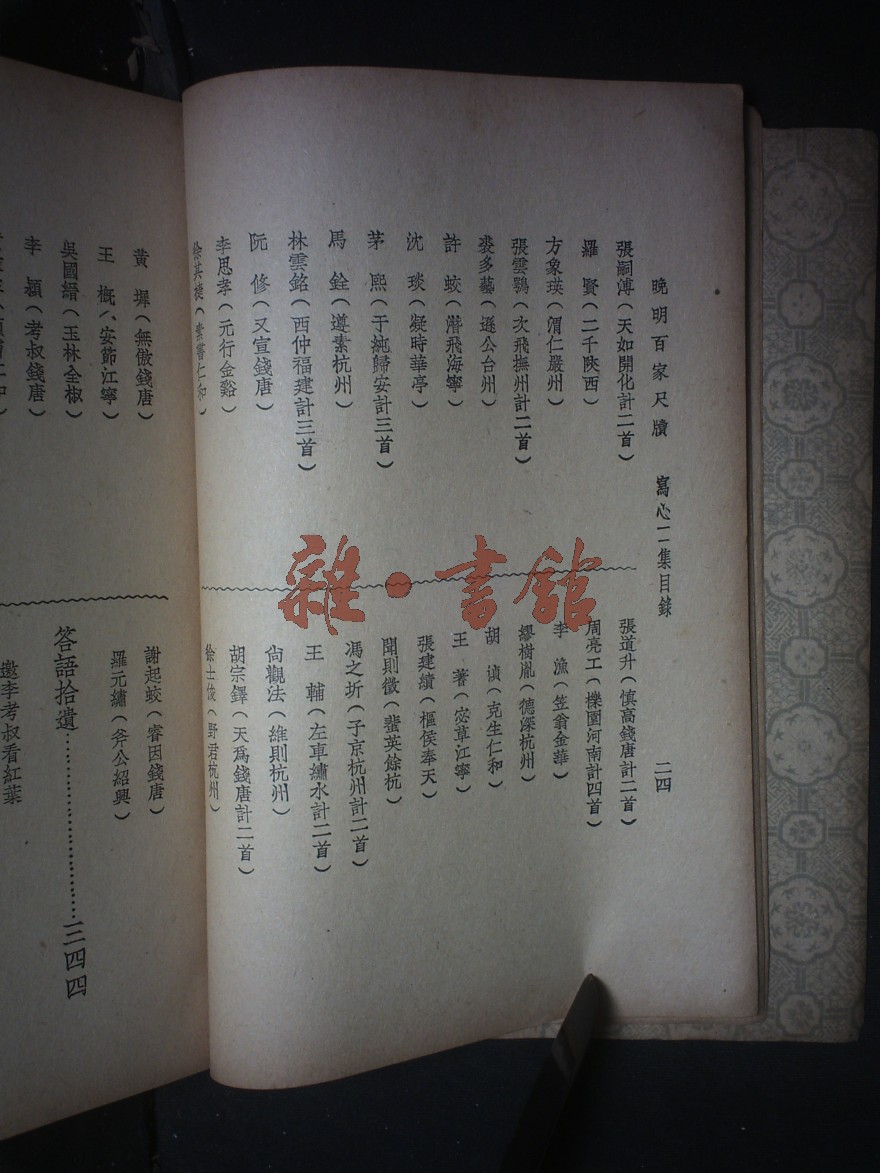 晚明百家尺牘　寫心二集目錄　二四
張嗣溥（天如開化計二首）
羅　賢（二千陝西）
方象瑛（渭仁嚴州）
張雲鶚（次飛撫州計二首）
裘多藝（遜公台州）
許　蛟（潛飛海寧）
沈　琰（凝時華亭）
茅　熙（于純歸安計三首）
馬　銓（遵素杭州）
林雲銘（西仲福建計三首）
阮　修（又宣錢唐）
李思孝（元行金谿）
張道升（慎高錢唐計二首）
周亮工（櫟園河南計四首）
李　漁（笠翁金華）
繆樹胤（德深杭州）
胡　傎（克生仁和）
王　著（宓草江寧）
張建績（樞侯奉天）
聞則徵（蜚英餘杭）
馮之圻（子京杭州計二首）
王　輔（左車繡水計二首）
尙觀法（維則杭州）
胡宗鐸（天爲錢唐計二首）
徐士俊（野君杭州）
黃　墀（無傲錢唐）
王　槪（、安節江寧）
吳國縉（玉林全椒）
李　潁（考叔錢唐）
謝起蛟（睿因錢唐）
羅元繡（斧公紹興）
答語拾遺……………………三四四
邀李考叔看紅葉
雜·書館